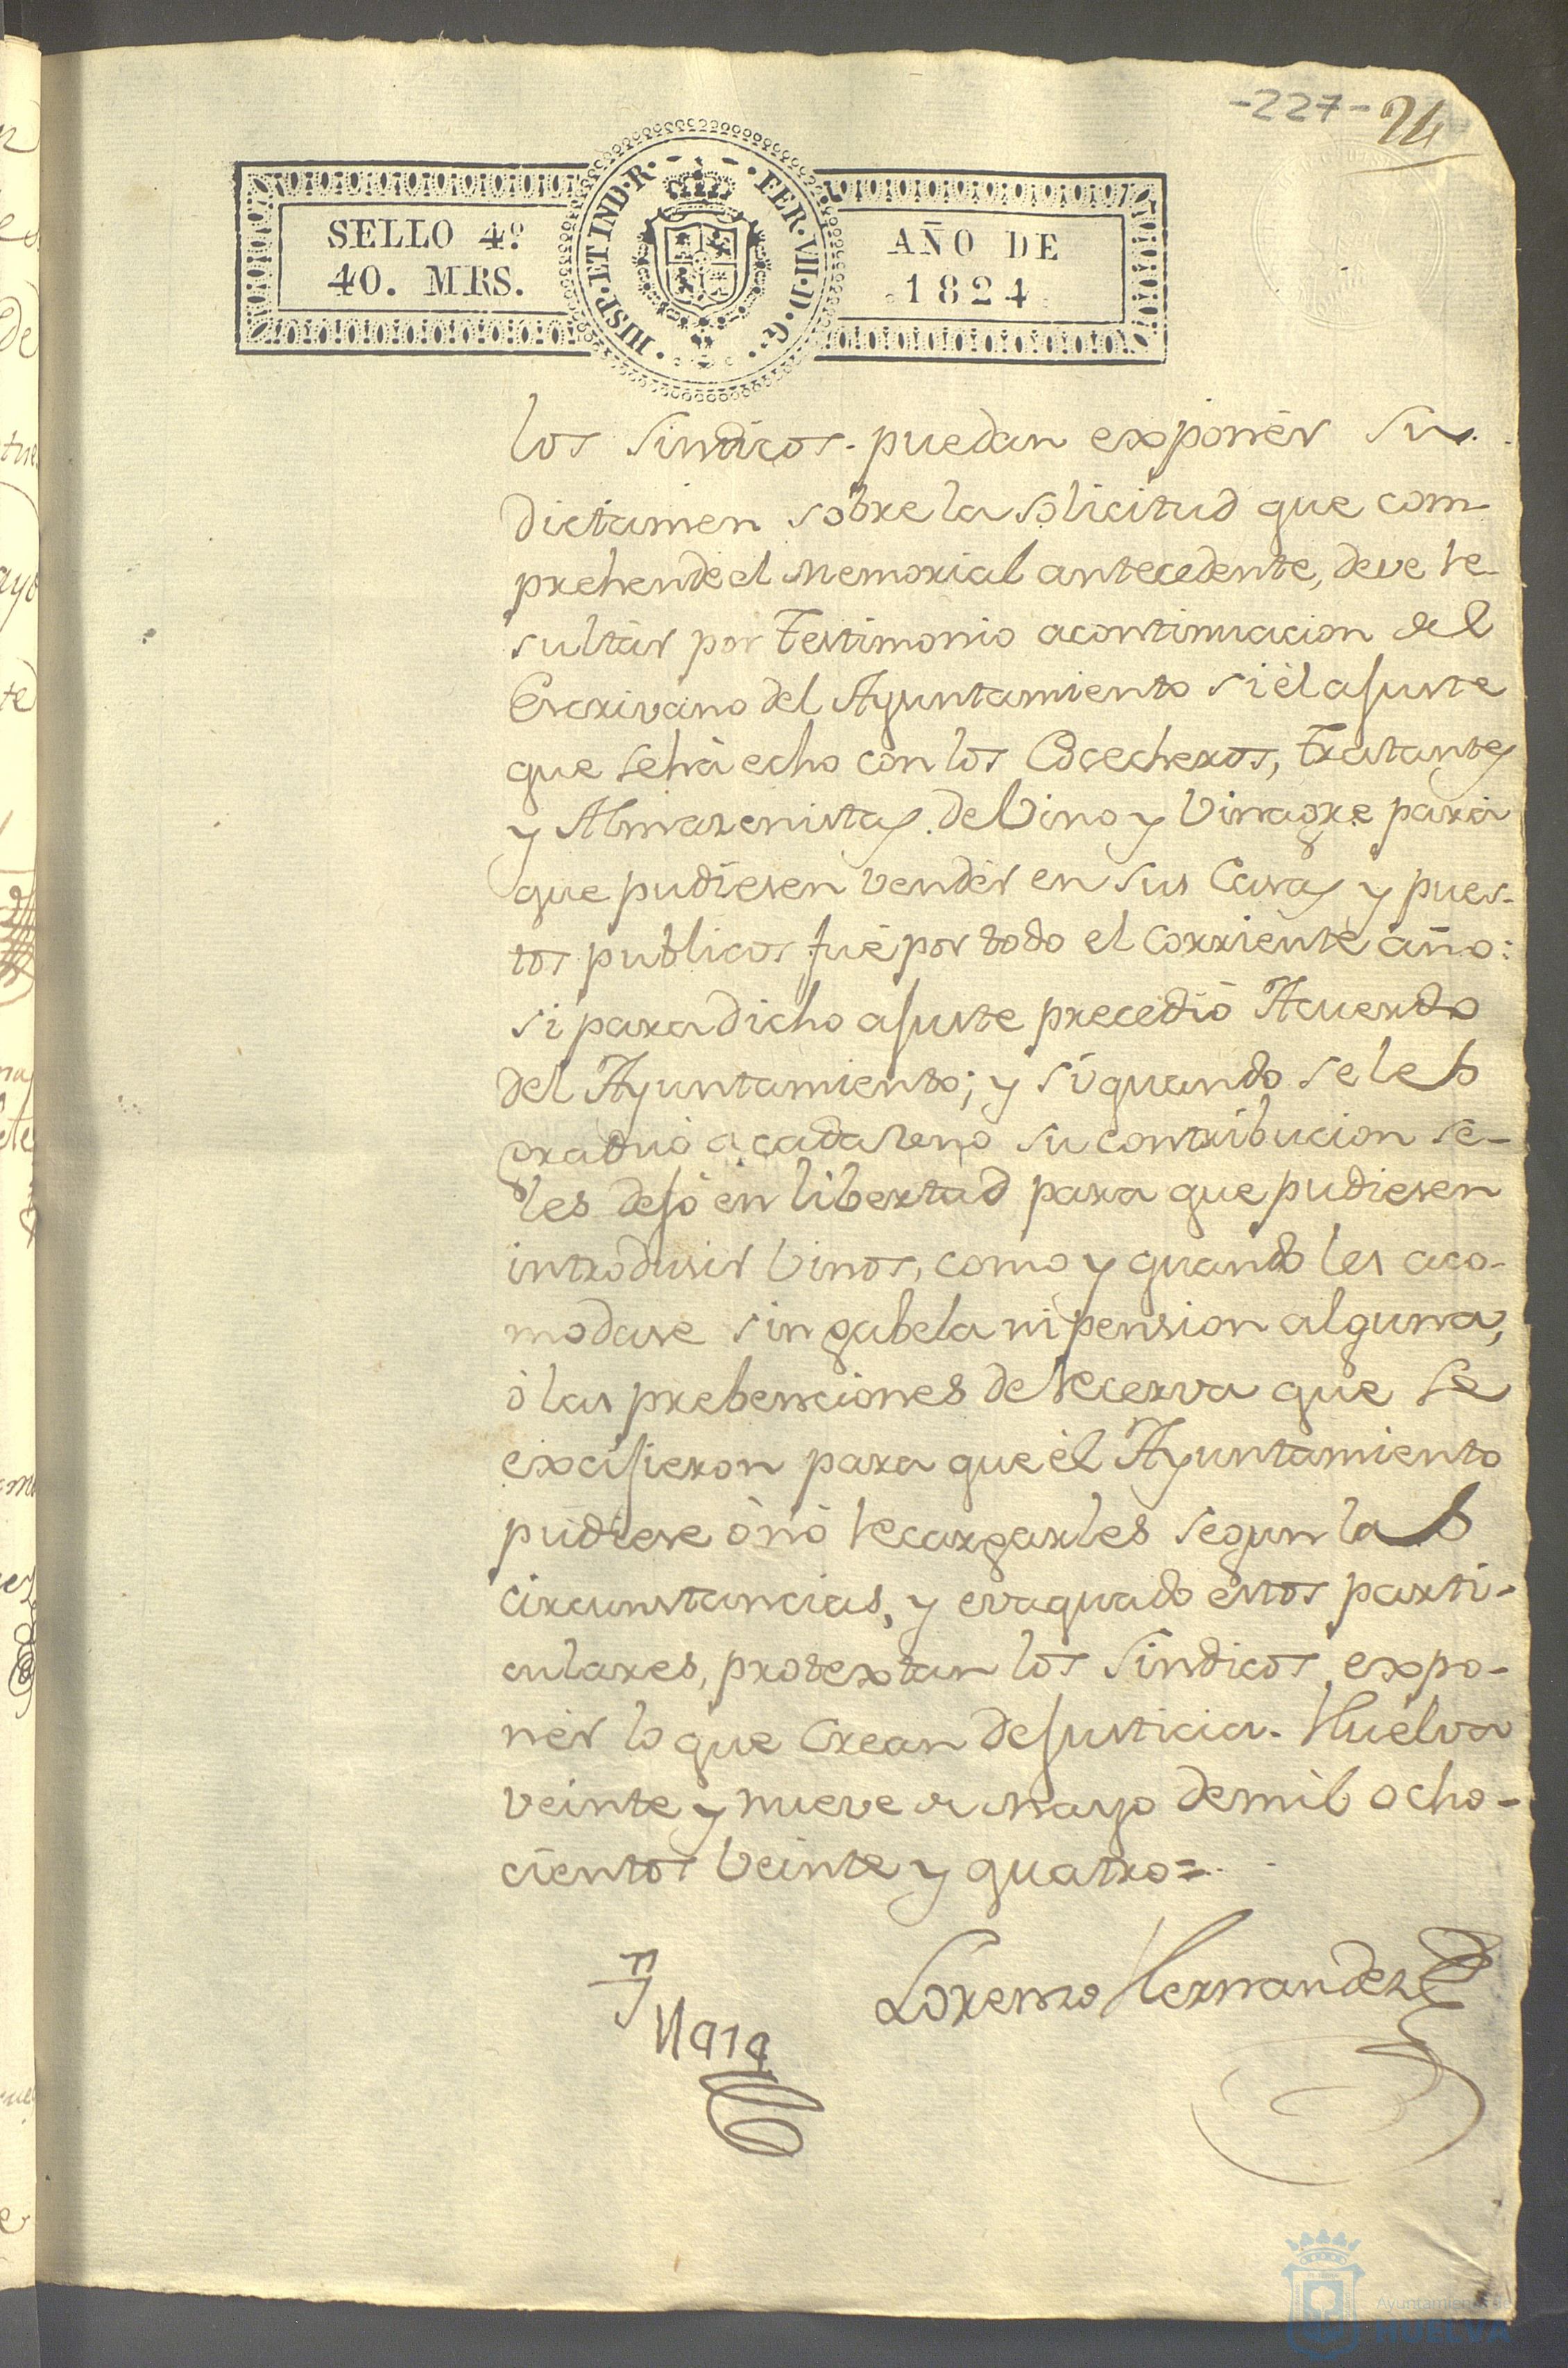 -227- 24
SELLO 4º
40. MRS.
HISP·ET IND·R· FER·VII·D·G·
AÑO DE
1824
los Sindicos puedan exponér su
dictamen sobre la solicitud que com-
prehende el Memorial antecedente, deve re-
sultár por testimonio acontinuacion del
Escrivano del Ayuntamiento si él ajuste
que sehá echo con los Cocecheros, tratantes
y Almazenistas de Vino y Vinagre para
que pudiesen vendér en sus Casas y pues-
tos publicos fué por todo el corriente año:
si para dicho ajuste precedió Acuerdo
del Ayuntamiento; y si quando se les
graduó a cada uno su contribucion se-
les dejó en libertad para que pudiesen
introdusir Vinos, como y quando les aco-
modase sin gabela ni pension alguna,
ó las prebenciones de recerva que se
excijieron para que él Ayuntamiento
pudiese ó nó recargarles segun las
circunstancias, y evaquado estos parti-
culares, protextan los Sindicos expo-
nér lo que crean de justicia. Huelva
veinte y nueve de Mayo de mil ocho-
cientos veinte y quatro=
Lorenzo Hernandez
Ayuntamiento de
HUELVA